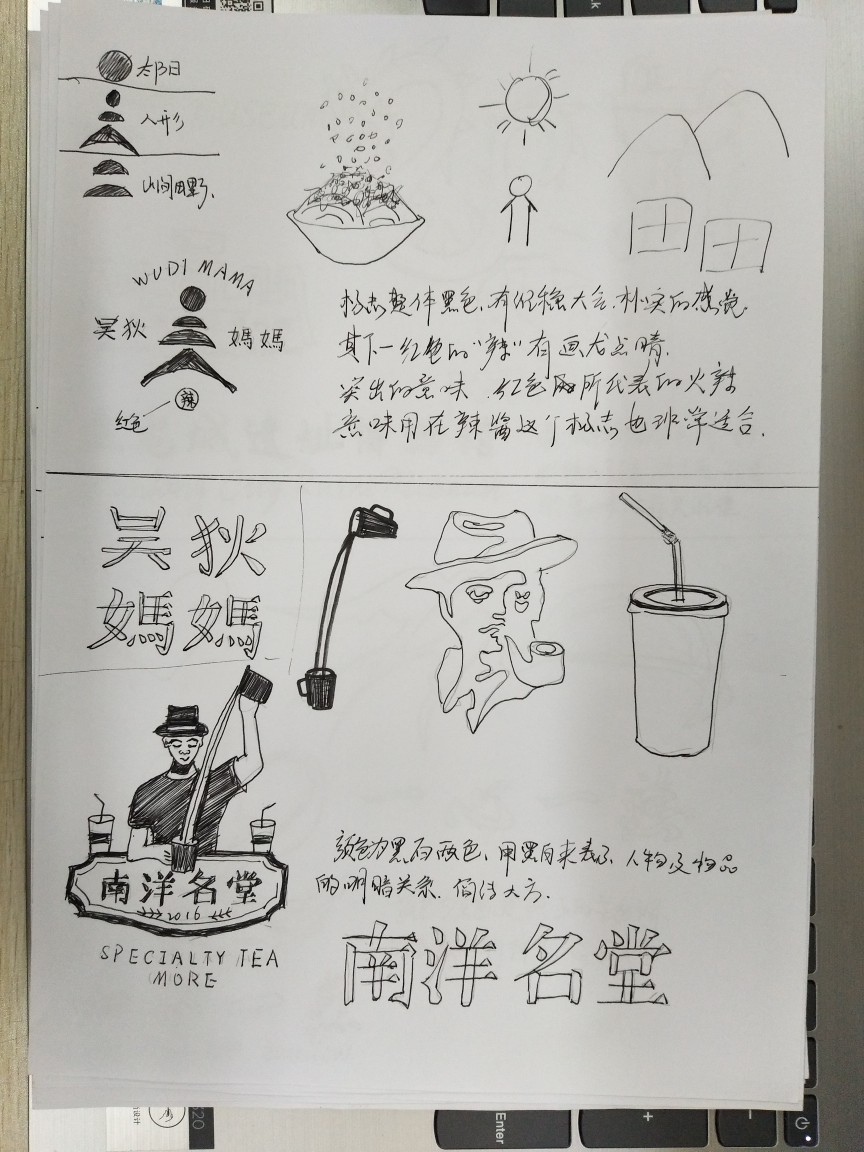 太阳
人形
山间田野、
WUDI MAMA
吴狄 媽媽
辣
红色
标志整体黑色、有任稳大会、朴实的感觉.
其下一红色的"辣"有画龙点睛.
突出的意味、红色所代表的火辣
意味用在辣酱这个标志也非常适合.
吴狄
媽媽
南洋名堂
2016
SPECIALTY TEA
MORE
颜色为黑白两色、用黑白来表示、人物及物品
的明暗关系.简洁大方.
南洋名堂
Enter